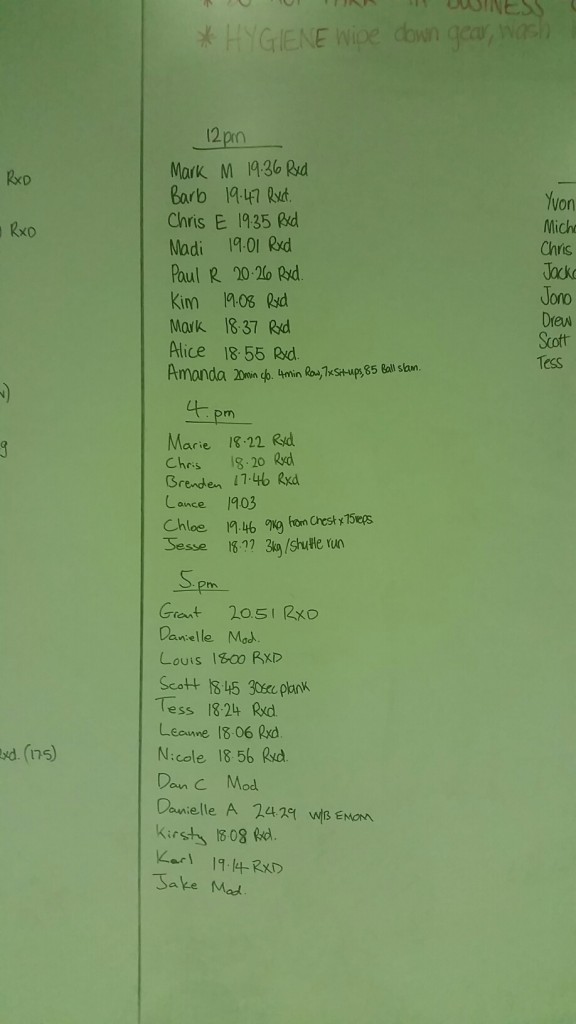 BUSINESS
* HYGIENE wipe down gear, wash
12pm
Mark M 19.36 Rxd
Barb 19.47 Rxd.
Chris E 19.35 Rxd
Madi 19.01 Rxd
Paul R 20.26 Rxd.
Kim 19.08 Rxd
Mark 18.37 Rxd
Alice 18.55 Rxd.
Amanda 20min c/o. 4min Row, 7x Sit-ups, 85 Ball slam.
4.pm
Marie 18.22 Rxd
Chris 18.20 Rxd
Brenden 17.46 Rxd
Lance 19.03
Chloe 19.46 9kg from Chest x 75reps
Jesse 18.?? 3kg/shuttle run
5.pm
Grant 20.51 RXD
Danielle Mod.
Louis 18.00 RXD
Scott 18.45 30sec plank
Tess 18.24 Rxd.
Leanne 18.06 Rxd.
Nicole 18.56 Rxd.
Dan C Mod
Danielle A 24.29 W/B EMOM
Kirsty 18.08 Rxd.
Karl 19.14 RXD
Jake Mod.
RXD
RXD
Rxd. (175)
Yvon
Mich
Chris
Jack
Jono
Drew
Scott
Tess